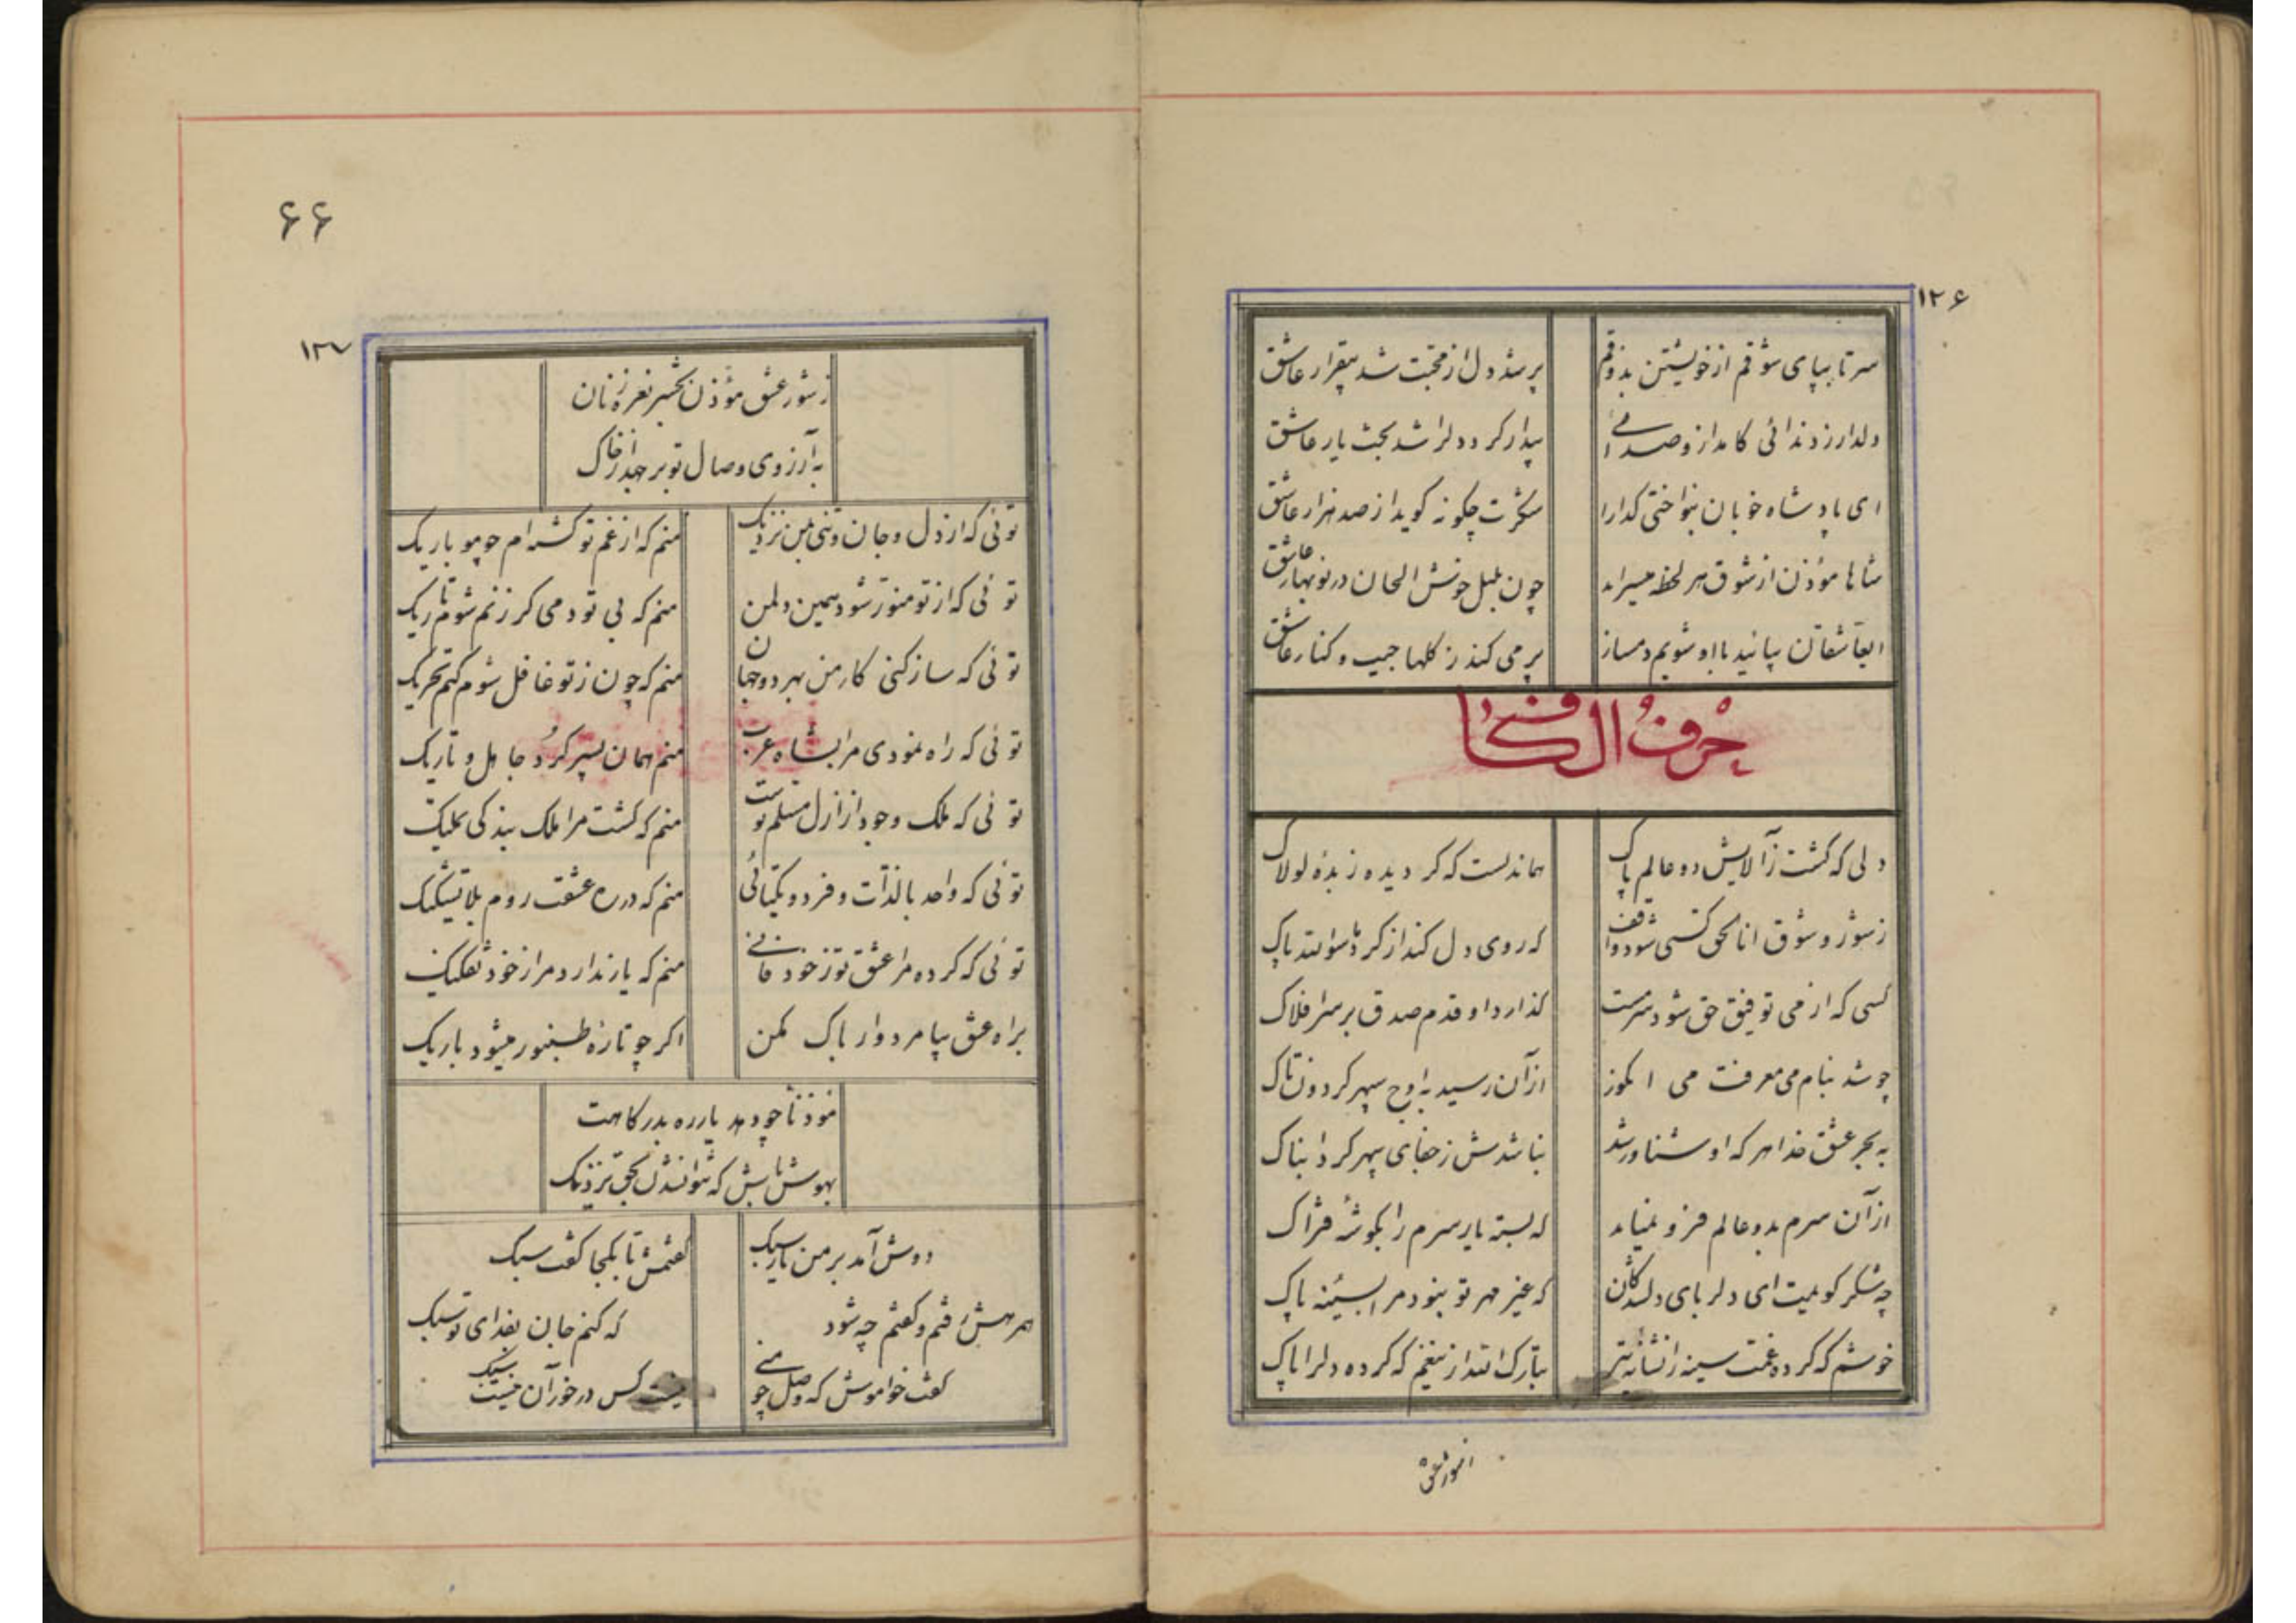 ۱۲۶
سر تا بپای شوقم از خویشتن بذوقم پر شد دل از محبت شد بیقرار عاشق
دلدار زد ندائی کامد از و صدائی بیدار کرد دلرا شد بخت یار عاشق
ای پادشاه خوبان بنواختی کدارا شکرت چکونه کوید از صد هزار عاشق
شاها مؤذن از شوق هر لحظه میسراید چون بلبل خوش الحان در نوبهار عاشق
ایعاشقان بیائید با او شویم دمساز پر می کند ز کلها جیب و کنار عاشق
حرف الکاف
دلی که کشت ز آلایش دو عالم پاک هماندلست که کردیده زبدهٔ لولاک
ز سوز و شوق انا الحق کسی شود واقف که روی دل کند از کرد ما سوا لله پاک
کسی که از می توفیق حق شود سرمست کذارد او قدم صدق بر سر افلاک
چو شد بنام می معرفت می انکور از آن رسید به اوج سپهر کردون تاک
به بحر عشق خدا هر که او شناور شد نباشدش ز جفای سپهر کرد ابناک
از آن سرم بدو عالم فرو نمیاید که بسته یار سرم را بکوشهٔ فتراک
چه شکر کویمت ای دلربای دلدکان که غیر مهر تو نبود مرا بسینه پاک
خوشم که کرده غمت سینه را نشانه تیر تبارک الله از تیغم که کرده دلرا پاک
۶۶
۱۲۷
ز شور عشق مؤذن بحشر نعره زنان
به آرزوی وصال تو بر جهد از خاک
توئی که از دل و جان و تنی بمن نزدیک منم که از غم تو کشته ام چو مو باریک
توئی که از تو منور شود همین دلمن منم که بی تو دمی کر زنم شوم تاریک
توئی که ساز کنی کار من بهر دو جهان منم که چون ز تو غافل شوم کنم تحریک
توئی که راه نمودی مرا بشاه عرب منم همان پسر کرد جاهل و تاریک
توئی که ملک وجود از ازل مسلم تو ست منم که کشت مرا ملک بندکی تملیک
توئی که واحد بالذات و فرد و یکتائی منم که در ره عشقت روم بلا تشکیک
توئی که کرده مرا عشق تو ز خود فانی منم که یار ندارد مرا ز خود تفکیک
براه عشق بیا مرد وار باک مکن اکر چو تار ه طنبور میشود باریک
مؤذنا چو دهد یار ره بدرکاهت
بهوش باش که نتوان شدن بحق نزدیک
دوش آمد بر من یار سبک کفتمش تا بکجا کفت سبک
همرهش رفتم و کفتم چه شود که کنم جان بفدای تو سبک
کفت خواموش که وصل چو منی نیست کس در خور آن نیست سبک